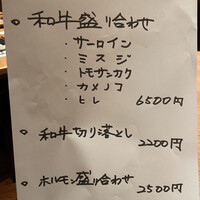 。和牛盛り合わせ
・サーロイン
・ミスジ
・トモサンカク
・カメノコ
・ヒレ 6500円
。和牛切り落とし
2200円
。ホルモン盛り合わせ
2500円